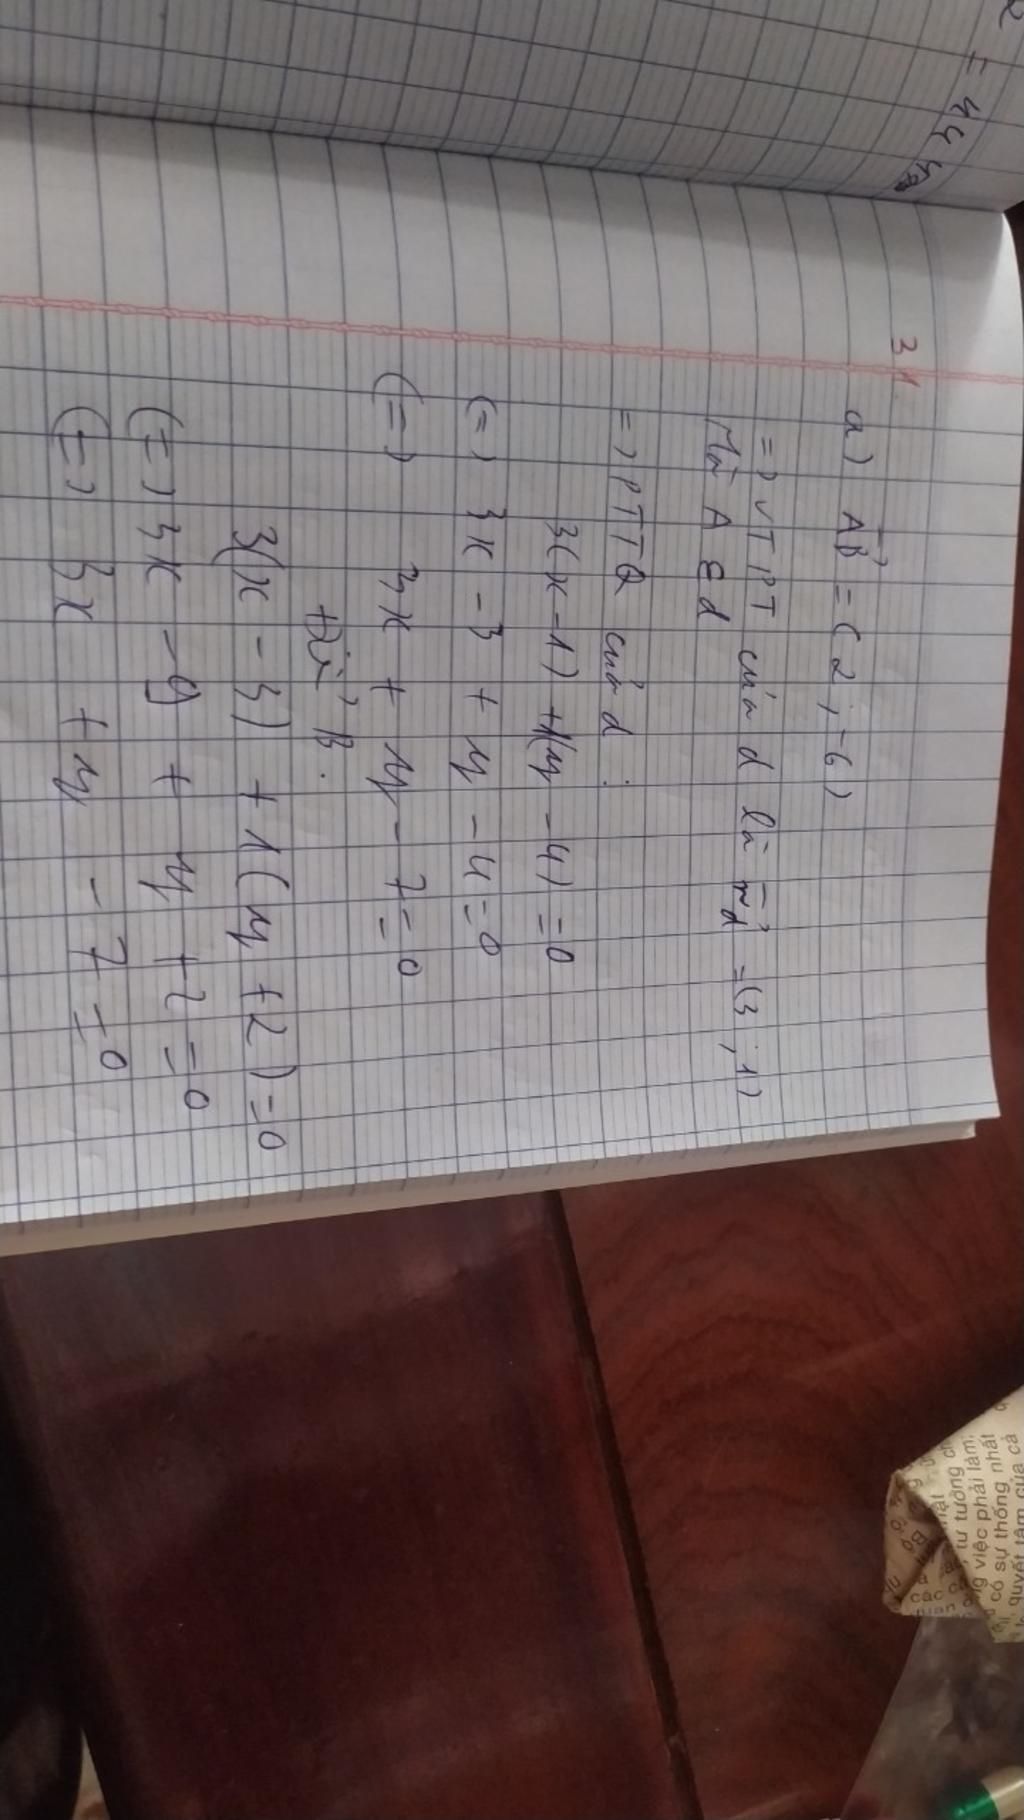 31.
a) AB = (2; -6)
=) VTPT của d là nd = (3; 1)
Mà A ∈ d
=) PTTQ của d :
3(x - 1) + 1(y - 4) = 0
(=) 3x - 3 + y - 4 = 0
(=) 3x + y - 7 = 0
B.
3(x - 3) + 1(y + 2) = 0
(=) 3x - 9 + y + 2 = 0
(=) 3x + y - 7 = 0
tư tưởng
việc phải làm,
có sự thống nhất
quyết tâm của cả